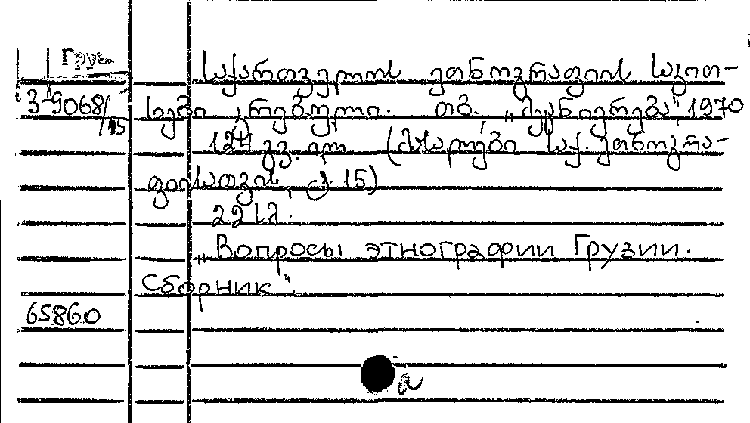 Груз
საქართველოს ეთნოგრაფიის საკით-
3-9068/15
ხები კრებული. თბ. „მეცნიერება", 1970
124 გვ.
(მასალები საქ. ეთნოგრა-
ფიისათვის, 15)
„Вопросы этнографии Грузии.
Сборник".
65860
а